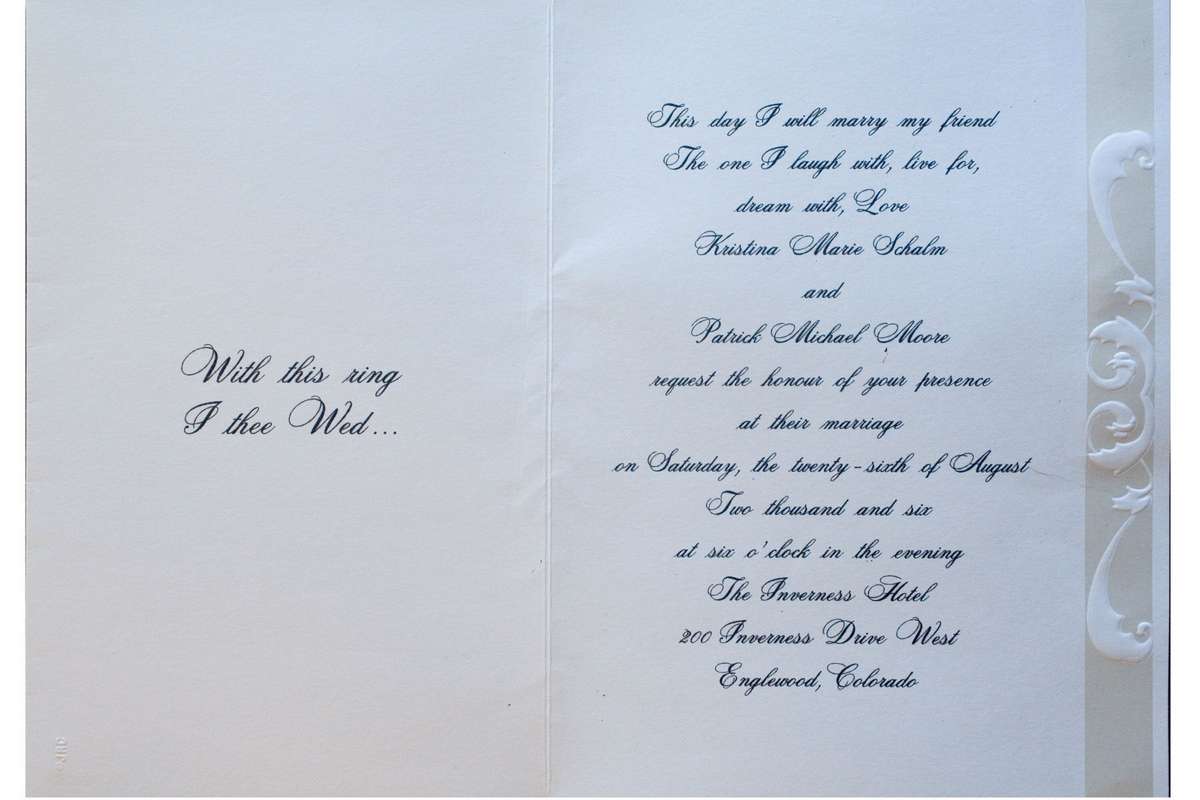 With this ring
I thee Wed...
This day I will marry my friend
The one I laugh with, live for,
dream with, Love
Kristina Marie Schalm
and
Patrick Michael Moore
request the honour of your presence
at their marriage
on Saturday, the twenty-sixth of August
Two thousand and six
at six o'clock in the evening
The Inverness Hotel
200 Inverness Drive West
Englewood, Colorado